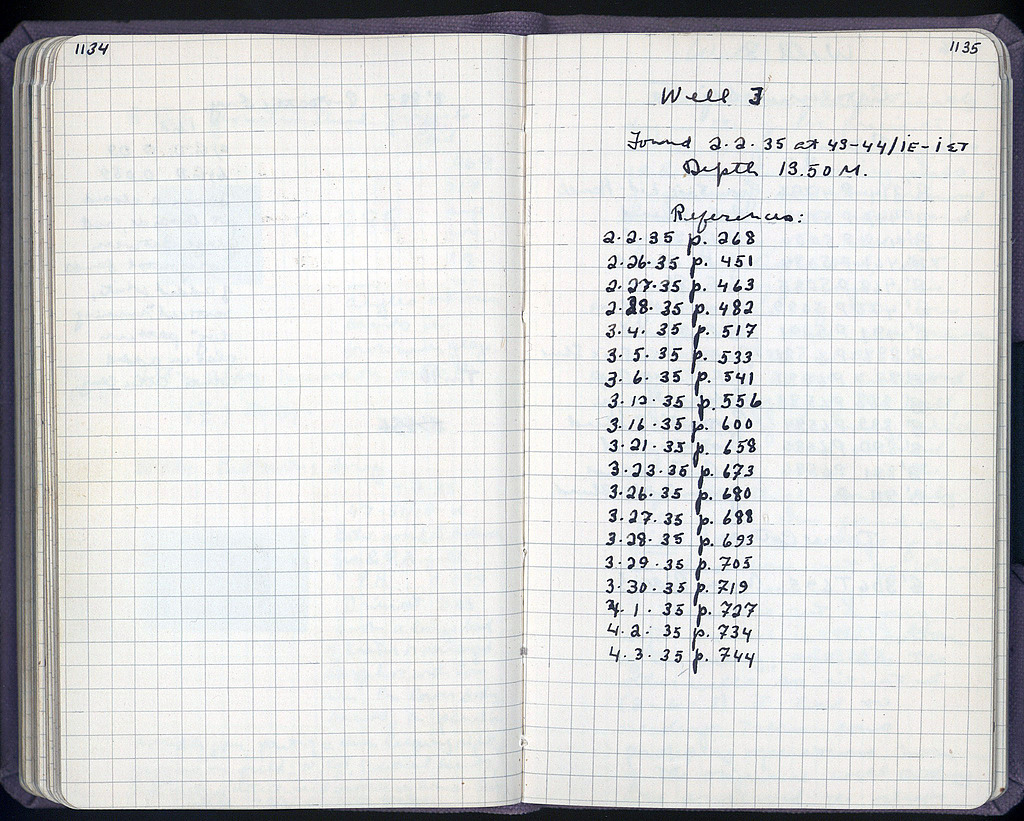 1134
1135
Well 3
Found 2.2.35 at 43-44/ΙΕ-ΙΣΤ
Depth 13.50 M.
References:
2.2.35 p. 268
2.26.35 p. 451
2.27.35 p. 463
2.28.35 p. 482
3.4.35 p. 517
3.5.35 p. 533
3.6.35 p. 541
3.13.35 p. 556
3.16.35 p. 600
3.21.35 p. 658
3.23.35 p. 673
3.26.35 p. 680
3.27.35 p. 688
3.28.35 p. 693
3.29.35 p. 705
3.30.35 p. 719
4.1.35 p. 727
4.2.35 p. 734
4.3.35 p. 744